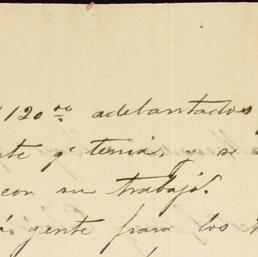 120 00 adelantados
te q' tenia, y se
con su trabajo.
gente para los